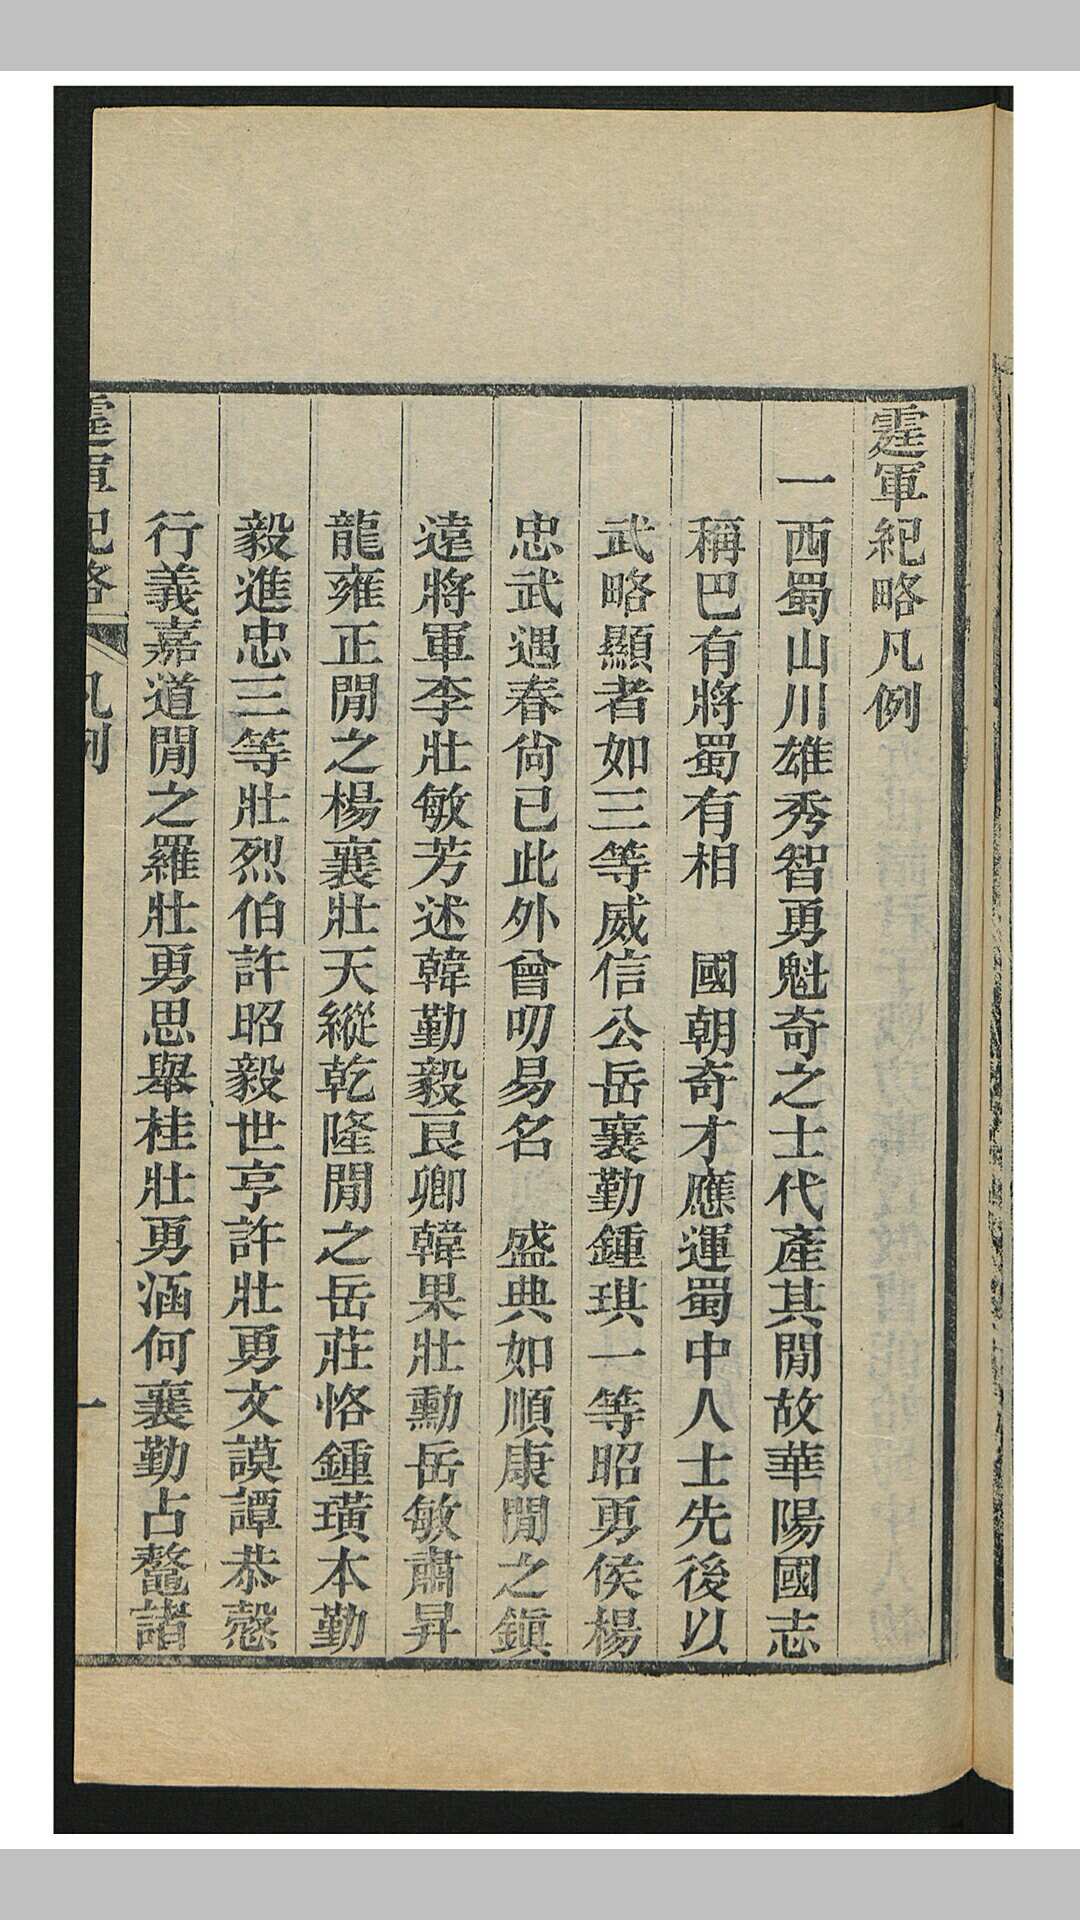 霆軍紀略凡例
一西蜀山川雄秀智勇魁奇之士代產其閒故華陽國志
稱巴有將蜀有相　國朝奇才應運蜀中人士先後以
武略顯者如三等威信公岳襄勤鍾琪一等昭勇侯楊
忠武遇春尙已此外曾叨易名　盛典如順康閒之鎭
遠將軍李壯敏芳述韓勤毅良卿韓果壯勳岳敏肅昇
龍雍正閒之楊襄壯天縱乾隆閒之岳莊恪鍾璜本勤
毅進忠三等壯烈伯許昭毅世亨許壯勇文謨譚恭慤
行義嘉道閒之羅壯勇思舉桂壯勇涵何襄勤占鼇諸
霆軍紀略　凡例　一